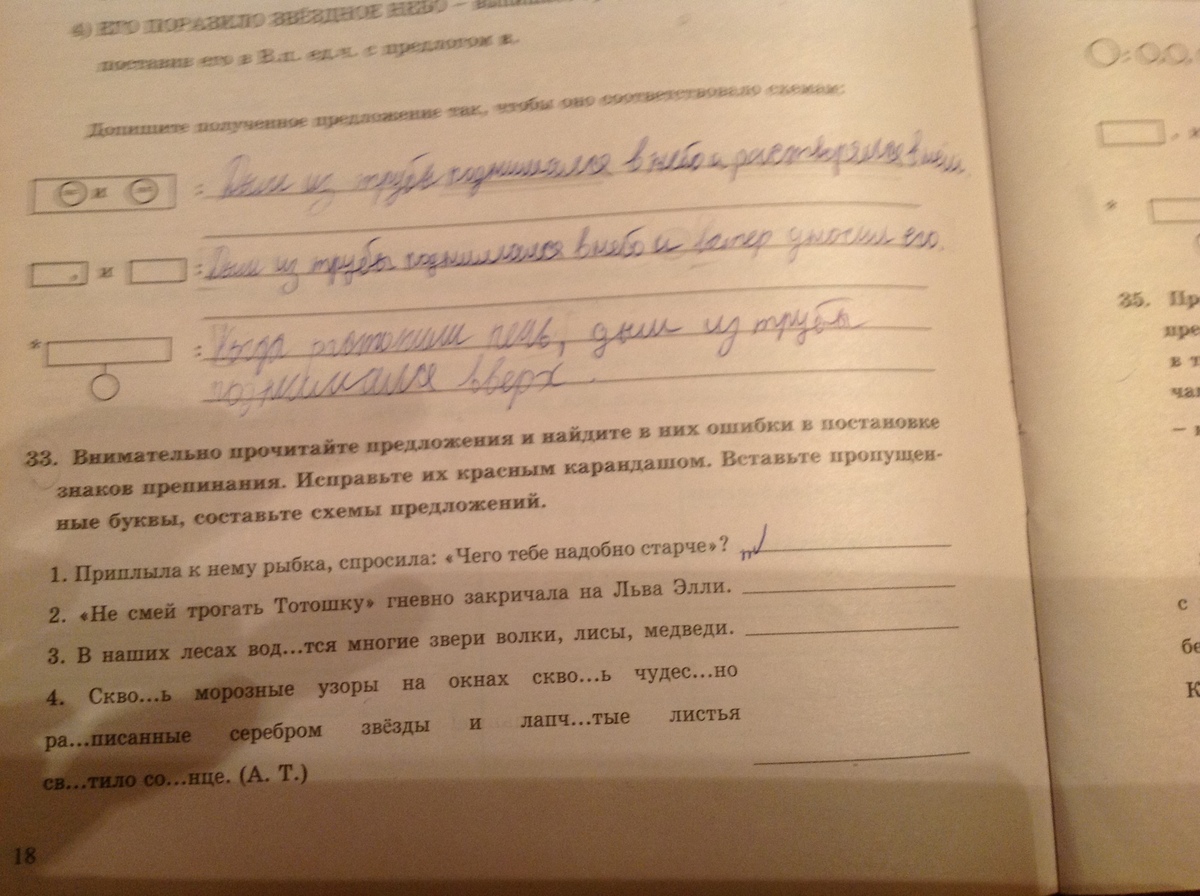 4) ЕГО ПОРАЗИЛО ЗВЁЗДНОЕ НЕБО –
поставив его в В.п. ед.ч. с предлогом в.
Допишите полученное предложение так, чтобы оно соответствовало схемам:
и : Дым из трубы поднимался в небо и растворялся в нём.
, и : Дым из трубы поднимался в небо и ветер уносил его.
* : Когда печь, дым из трубы
поднимался вверх.
33. Внимательно прочитайте предложения и найдите в них ошибки в постановке
знаков препинания. Исправьте их красным карандашом. Вставьте пропущен-
ные буквы, составьте схемы предложений.
1. Приплыла к нему рыбка, спросила: «Чего тебе надобно старче»?
2. «Не смей трогать Тотошку» гневно закричала на Льва Элли.
3. В наших лесах вод...тся многие звери волки, лисы, медведи.
4. Скво...ь морозные узоры на окнах скво...ь чудес...но
ра...писанные серебром звёзды и лапч...тые листья
св...тило со...нце. (А. Т.)
18
35. Пр
пре
в т
ча
–
с
бе
К